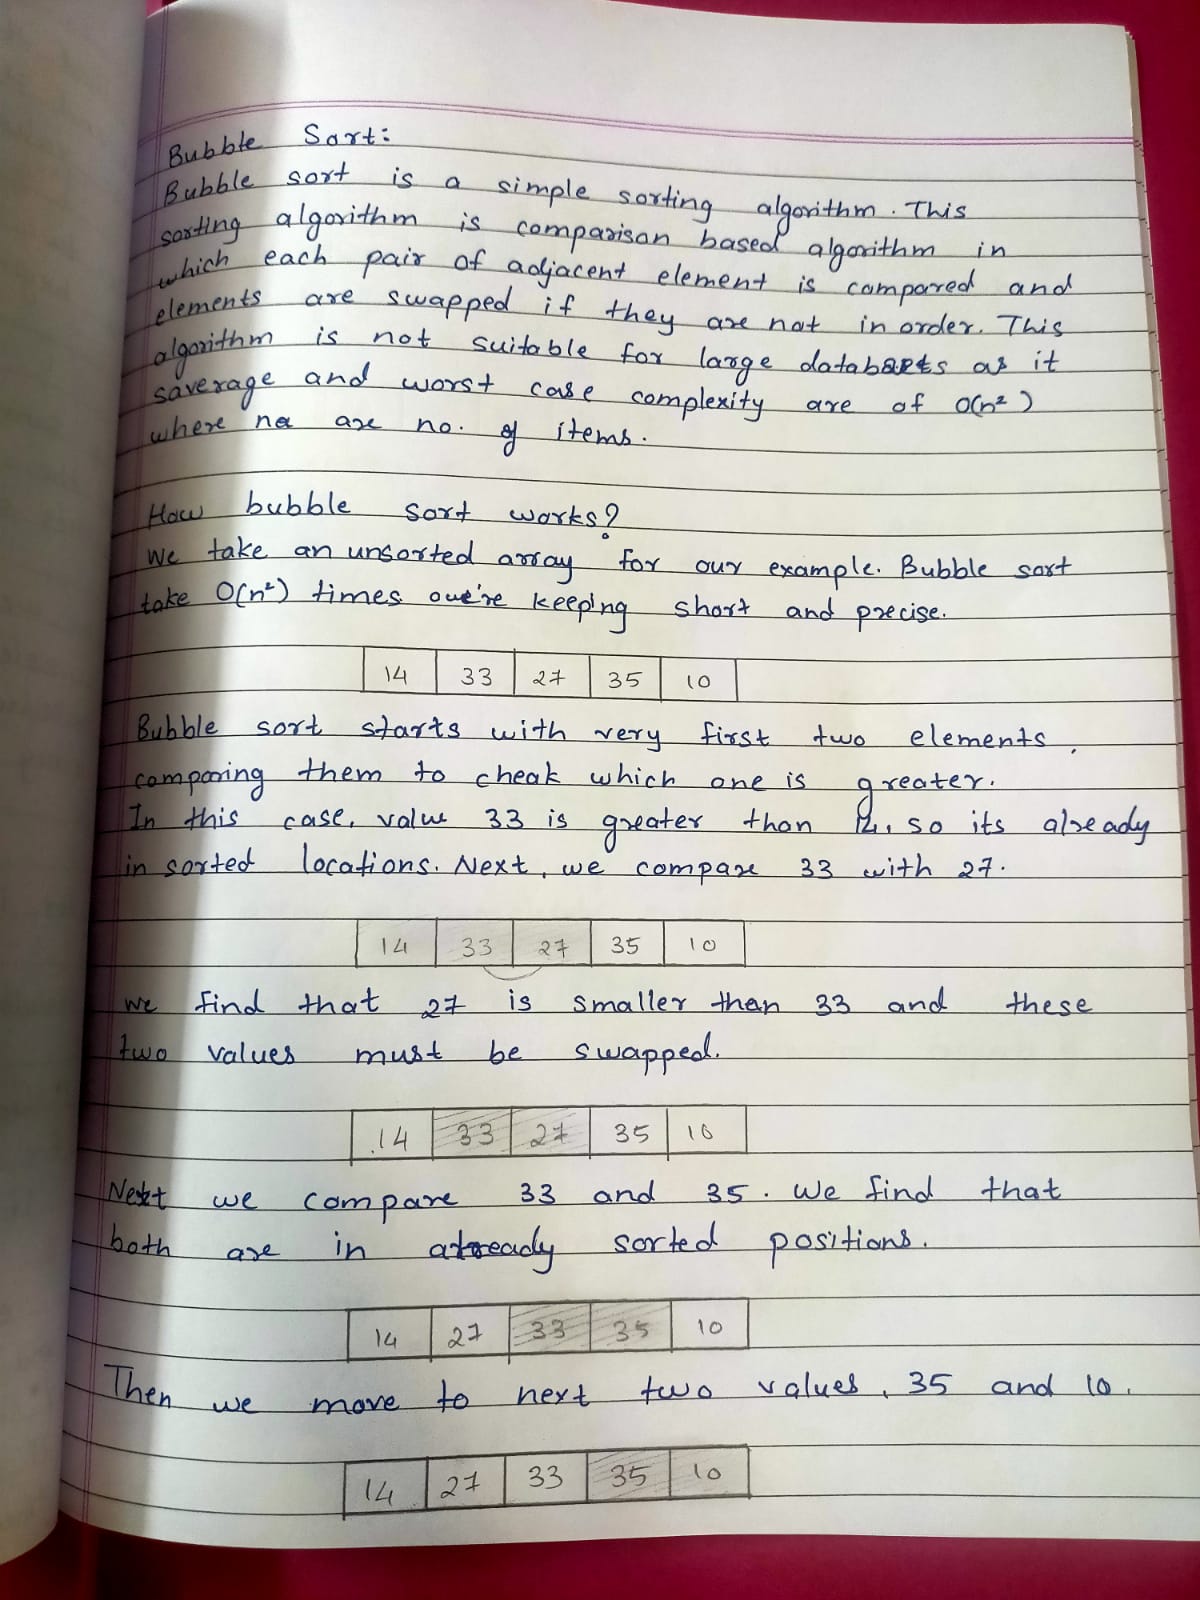 Bubble Sort:
Bubble sort is a simple sorting algorithm. This
sorting algorithm is comparison based algorithm in
which each pair of adjacent element is compared and
elements are swapped if they are not in order. This
algorithm is not suitable for large databsets as it
saverage and worst case complexity are of O(n²)
where na are no. of items.
How bubble sort works?
We take an unsorted array for our example. Bubble sort
take O(n²) times owe're keeping short and precise.
14 33 27 35 10
Bubble sort starts with very first two elements,
comparing them to cheak which one is greater.
In this case, value 33 is greater than 14, so its already
in sorted locations. Next, we compare 33 with 27.
14 33 27 35 10
we find that 27 is smaller than 33 and these
two values must be swapped.
14 33 27 35 10
Next we compare 33 and 35. We find that
both are in already sorted positions.
14 27 33 35 10
Then we move to next two values, 35 and 10.
14 27 33 35 10